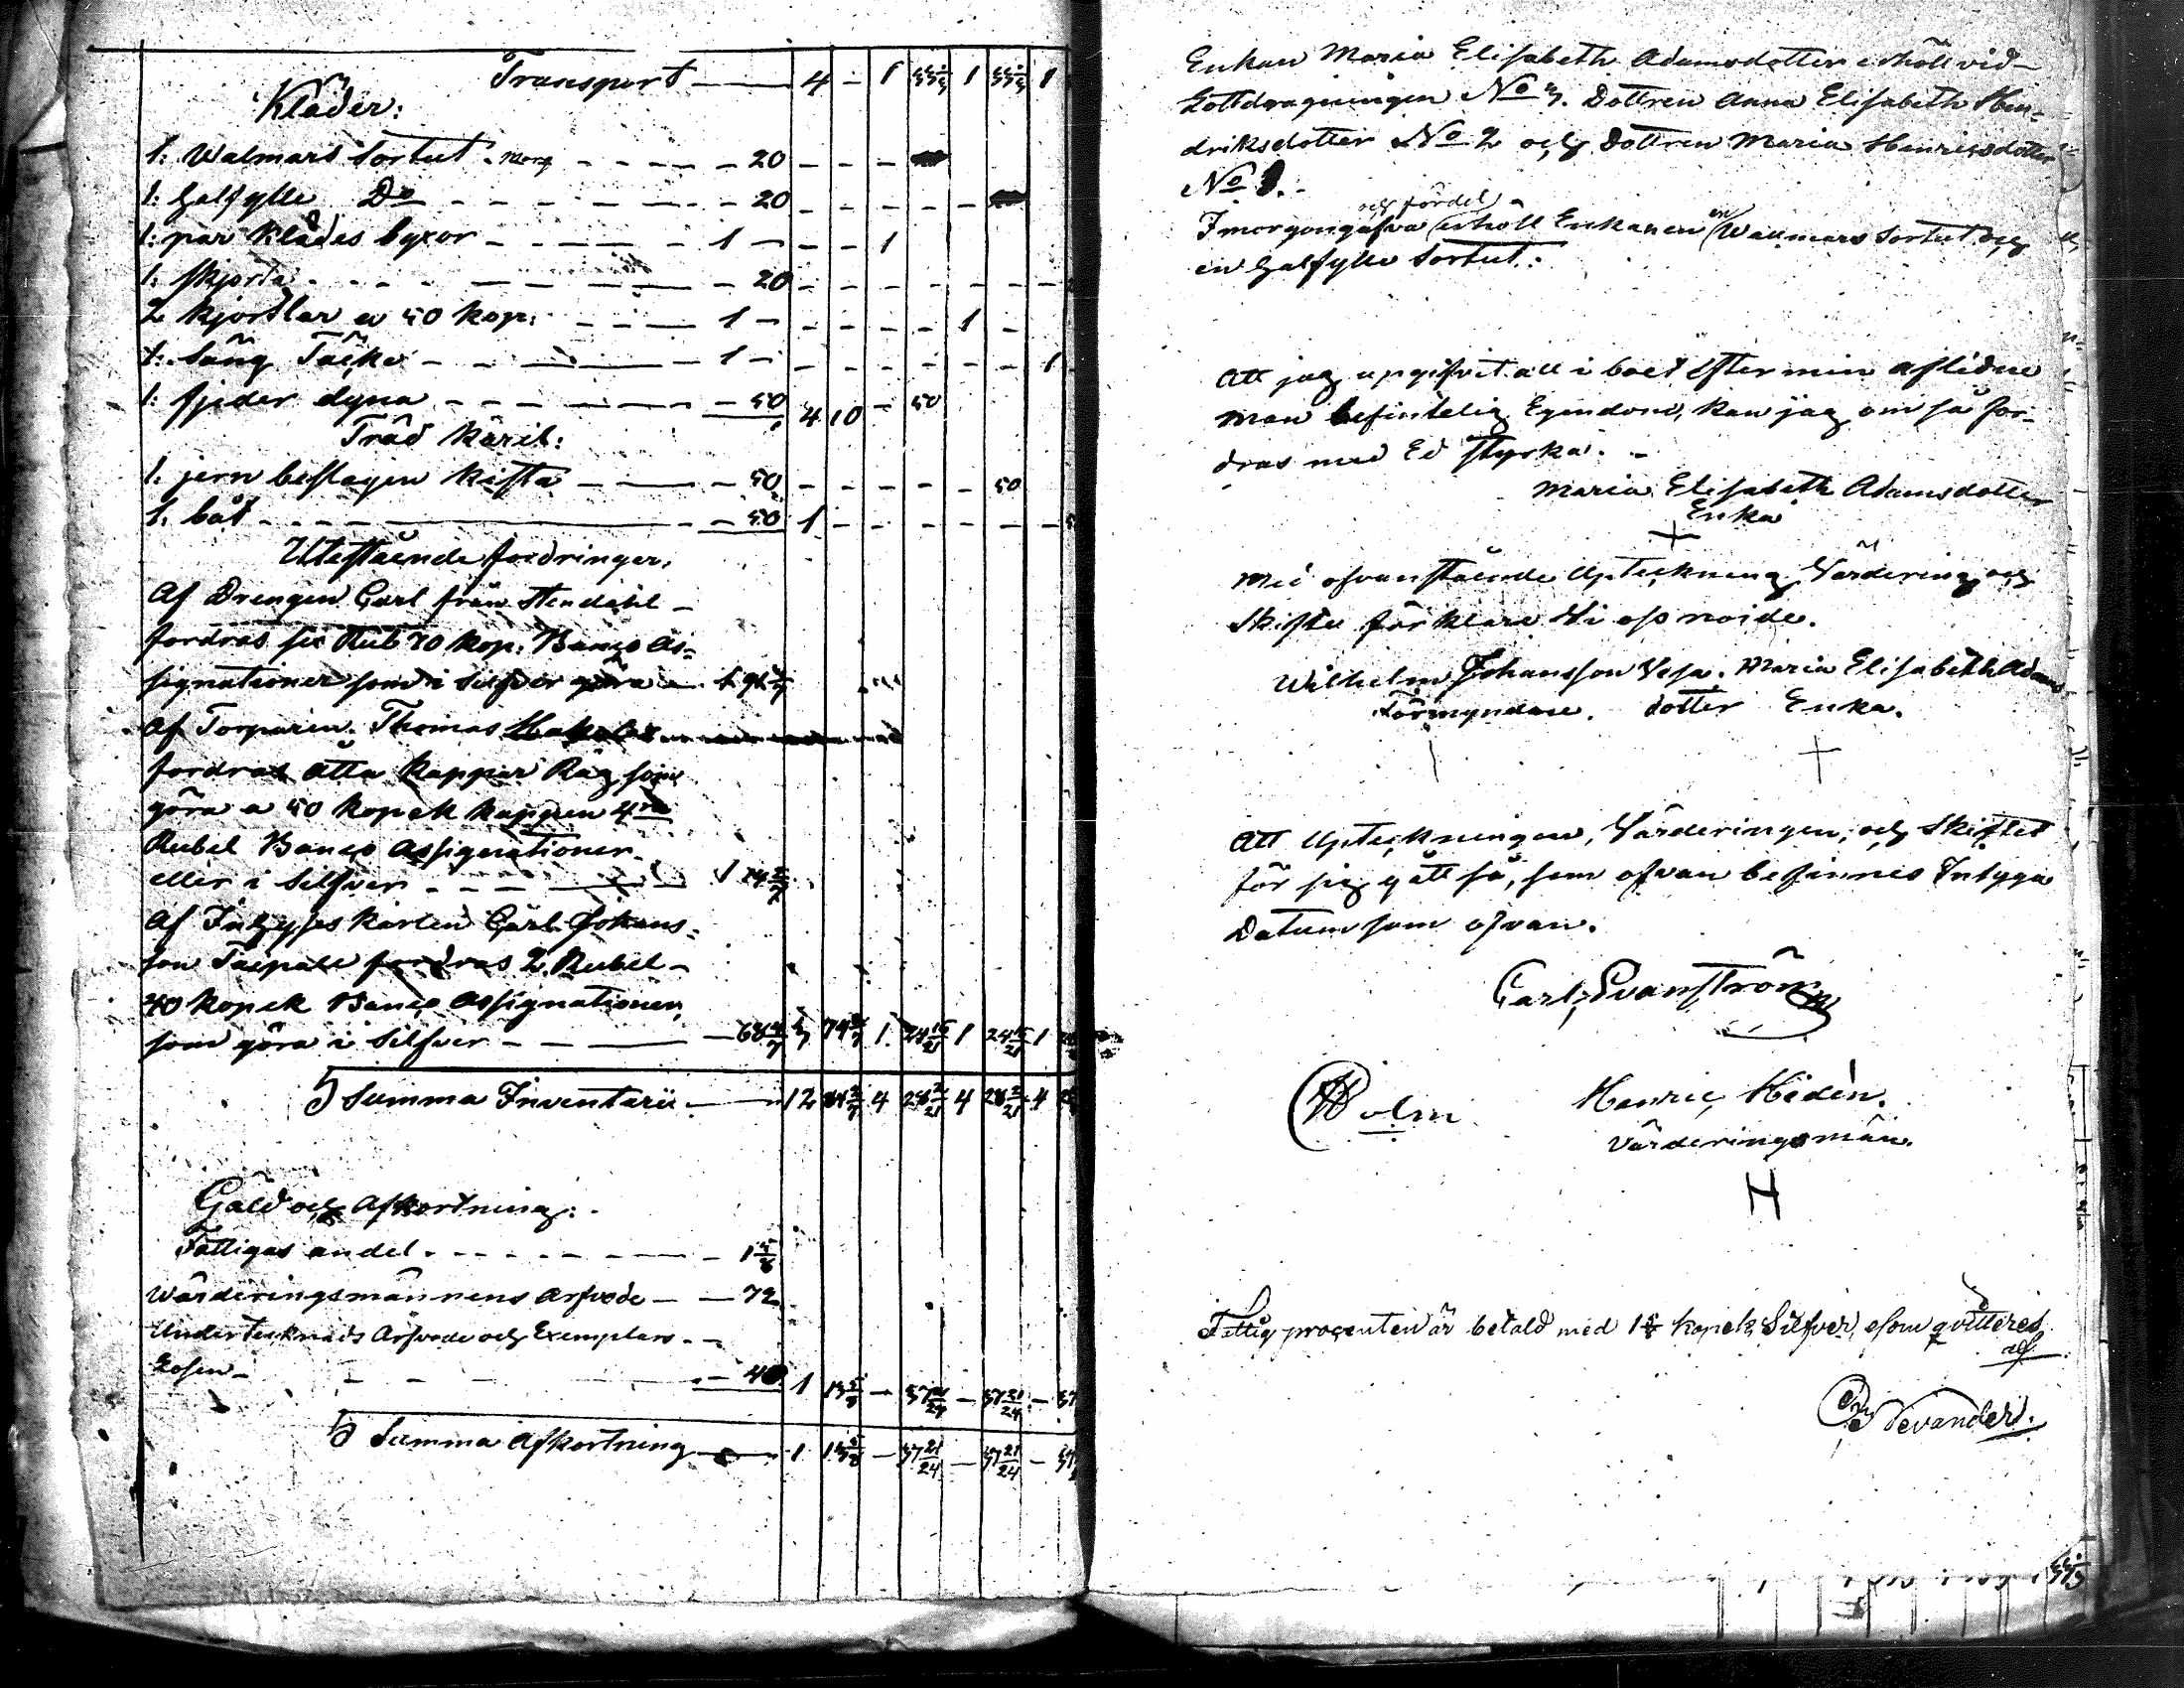 Transport — 4 – 1 33⅓ 1 33⅓ 1
Kläder:
1: Walmars Sortut - – 20 – – –
1: halfylle Do – 20 – – – – –
1: par Klädes byxor – 1 – – – 1
1: skjorta – 20 – – – – – – –
2 kjortlar a 50 kop: – 1 – – – – – 1 –
1: säng Täcke – 1 – – – – – – – 1
1: fjeder dyna – 50 4 10 – 50
Träd Käril:
1: jern beslagen kista – 50 – – – – – 50
1: båt – 50 1 – – – – – –
Utestående fordringar.
Af Drengen Carl från Stendahl
fordras Rub 70 kop. Banco As=
signationer som i Silfver göra
Af Torparen Thomas
fordras åtta kappar Råg som
göra a 50 kopek kappen 4ra
Rubel Banco Assignationer
eller i Silfver – 1 14 2/7
Af Inhyses karlen Carl Johans=
son Taipale fordras 2 Rubel
40 kopek Banco Assignationer,
som göra i Silfver – 68 4/7 1 24 15/21 1 24 15/21 1
S Summa Inventarii — 12 84 2/7 4 28 2/21 4 28 2/21 4
Gäld och Afkortning:
Fattigas andel – 1
Wärderingsmännens Arfvode – 72
Undertecknads Arfvode och Exemplars
Lösen – 40 1 13 5/8 – 37 21/24 – 37 21/24 – 37
S Summa Afkortning — 1 13 5/8 – 37 21/24 – 37 21/24 – 37
Enkan Maria Elisabeth Adamsdotter erhöll vid
Lottdragningen No 3. Dottren Anna Elisabeth Hen=
driksdotter No 2 och Dottren Maria Henricsdotter
No 1.
och fördel
I morgongåfva erhöll Enkan en Wallmars Sortut och
en halfylle Sortut.
Att jag upgifvit all i boet efter min aflidne
man befintelig Egendom, kan jag om så for=
dras med Ed styrka.
Maria Elisabeth Adamsdotter
Enka
Med ofvanstående Upteckning Värdering och
Skifte förklare Vi oss nöide.
Wilhelm Johansson Vesa. Maria Elisabeth Adams
Förmyndare. dotter Enka.
Att Upteckningen, Värderingen, och Skiftet
för sig gått så, som ofvan befinnes Intyga
Datum som ofvan.
Carl Svanström
Holm Henric Hedén.
Värderingsmän.
H
Fattig procenten är betald med 1 kopek Silfver, som qvitteres
af
Nevander.
33⅓